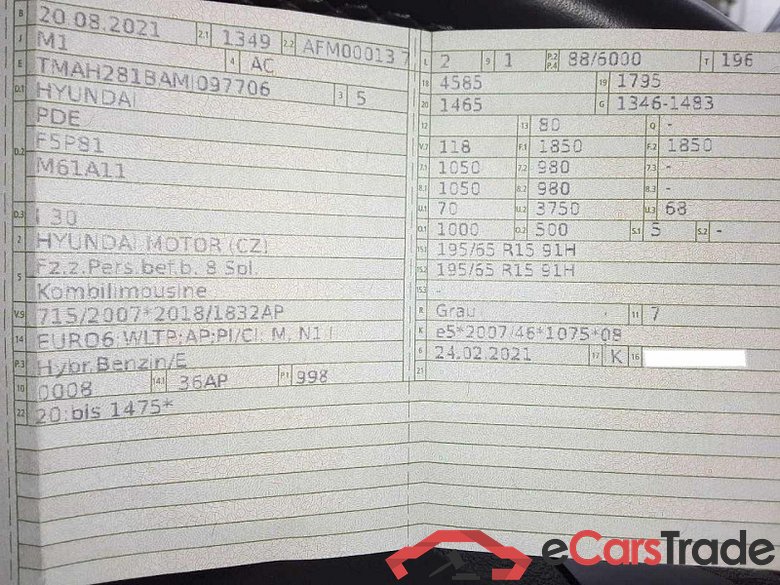 B 20.08.2021 2.1 1349 2.2 AFM00013 7
J M1 4 AC
E TMAH281BAMJ097706 3 5
D.1 HYUNDAI
D.2 PDE
F5P81
M61A11
D.3 I 30
2 HYUNDAI MOTOR (CZ)
5 Fz.z.Pers.bef.b. 8 Spl.
Kombilimousine
V.9 715/2007*2018/1832AP
14 EURO6;WLTP;AP;PI/CI; M, N1 I
P.3 Hybr.Benzin/E
10 0008 14.1 36AP P.1 998
22 20:bis 1475*
L 2 9 1 P.2 P.4 88/6000 T 196
18 4585 19 1795
20 1465 G 1346-1483
12 13 80 Q -
V.7 118 F.1 1850 F.2 1850
7.1 1050 7.2 980 7.3 -
8.1 1050 8.2 980 8.3 -
U.1 70 U.2 3750 U.3 68
O.1 1000 O.2 500 S.1 5 S.2 -
15.1 195/65 R15 91H
15.2 195/65 R15 91H
15.3 -
R Grau 11 7
K e5*2007/46*1075*08
6 24.02.2021 17 K 16
21
eCarsTrade